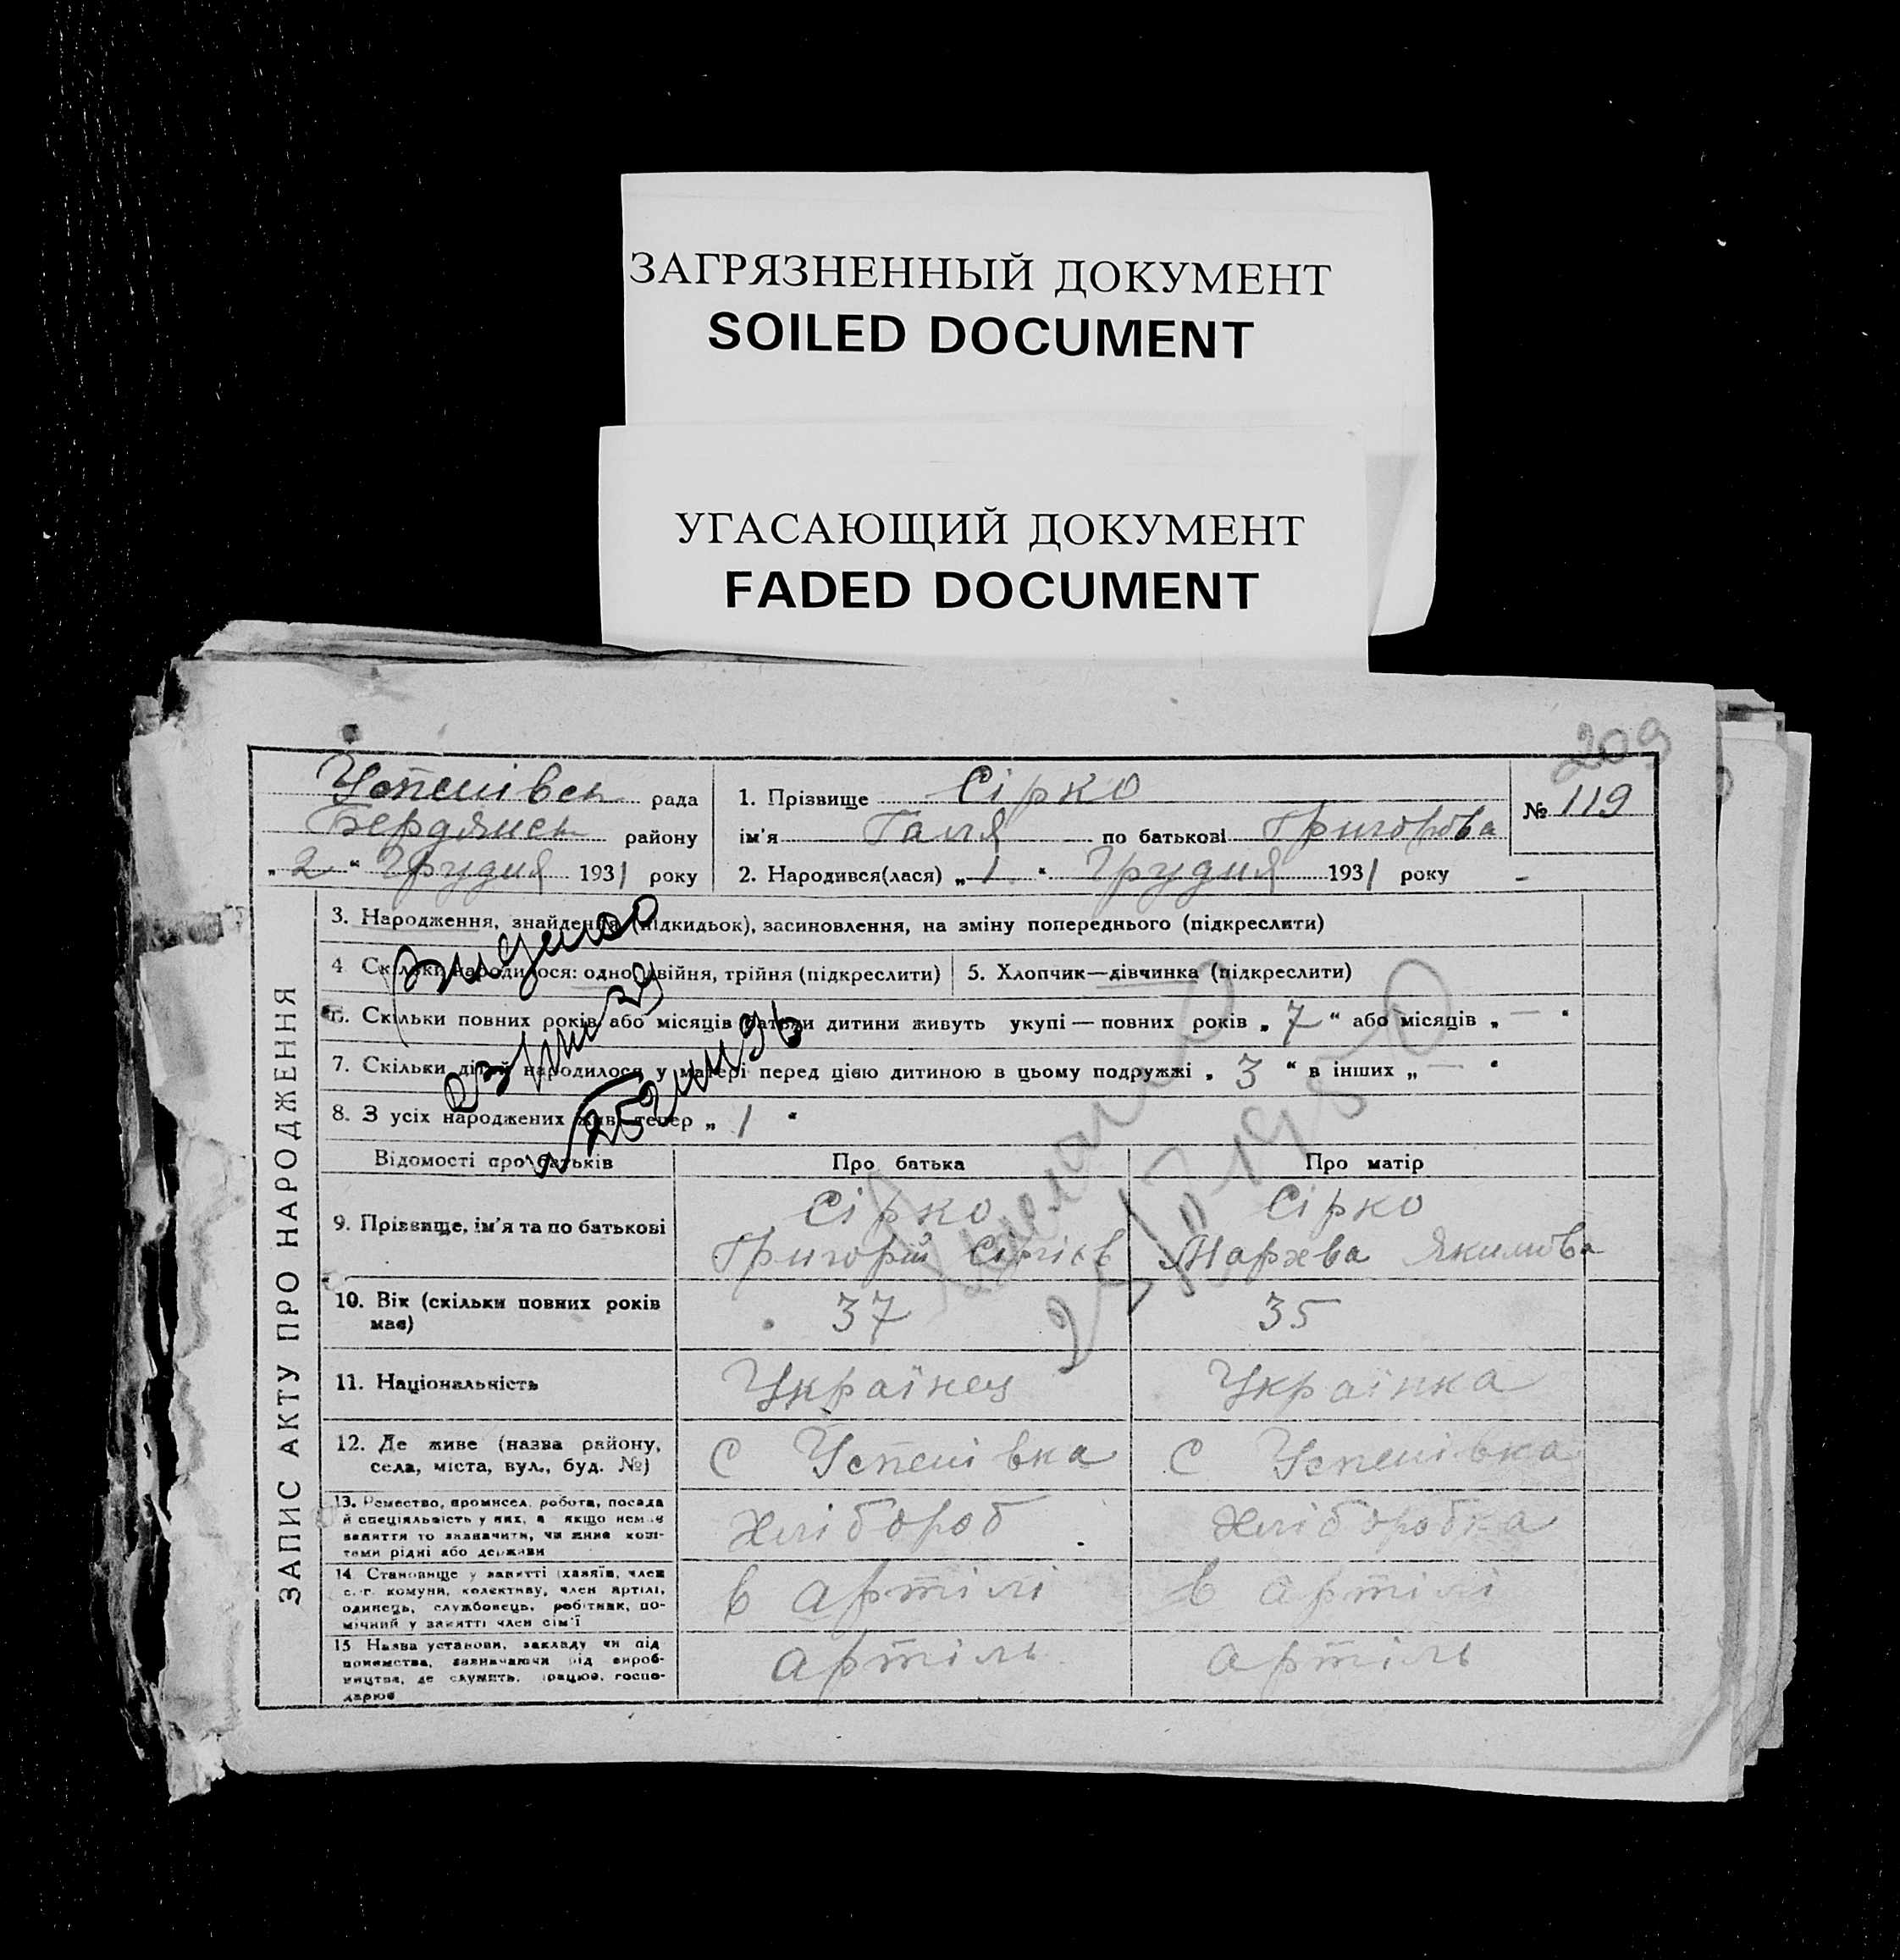 ЗАГРЯЗНЕННЫЙ ДОКУМЕНТ
SOILED DOCUMENT
УГАСАЮЩИЙ ДОКУМЕНТ
FADED DOCUMENT
209
Успенівськ рада
Бердянськ району
„2“ Грудня 1931 року
1. Прізвище Сірко
ім'я Галя по батькові Григорова
№ 119
2. Народився(лася) „1“ Грудня 1931 року -
ЗАПИС АКТУ ПРО НАРОДЖЕННЯ
3. Народження, знайдення (підкидьок), засиновлення, на зміну попереднього (підкреслити)
4 Скільки народилося: одно, двійня, трійня (підкреслити) 5. Хлопчик—дівчинка (підкреслити)
6. Скільки повних років або місяців батьки дитини живуть укупі — повних років „7“ або місяців „—“
7. Скільки дітей народилося у матері перед цією дитиною в цьому подружжі „3“ в інших „—“
8. З усіх народжених живі тепер „1“
Відомості про батьків Про батька Про матір
9. Прізвище, ім'я та по батькові
Сірко
Григорій Сергієв
Сірко
Мархва Якимова
10. Вік (скільки повних років має) 37 35
11. Національність Українец Українка
12. Де живе (назва району, села, міста, вул., буд. №)
С Успенівка С Успенівка
13. Ремество, промисел, робота, посада й спеціяльність у них, а якщо немає заняття то зазначити, чи живе коштами рідні або держави
Хлібороб Хліборобка
14. Становище у занятті (хазяїн, член с.-г. комуни, колективу, член артілі, одинець, службовець, робітник, помічний у занятті член сім'ї
в артілі в артілі
15 Назва установи, закладу чи підприємства, зазначаючи рід виробництва, де служить, працює, господарює
артіль артіль
Видано